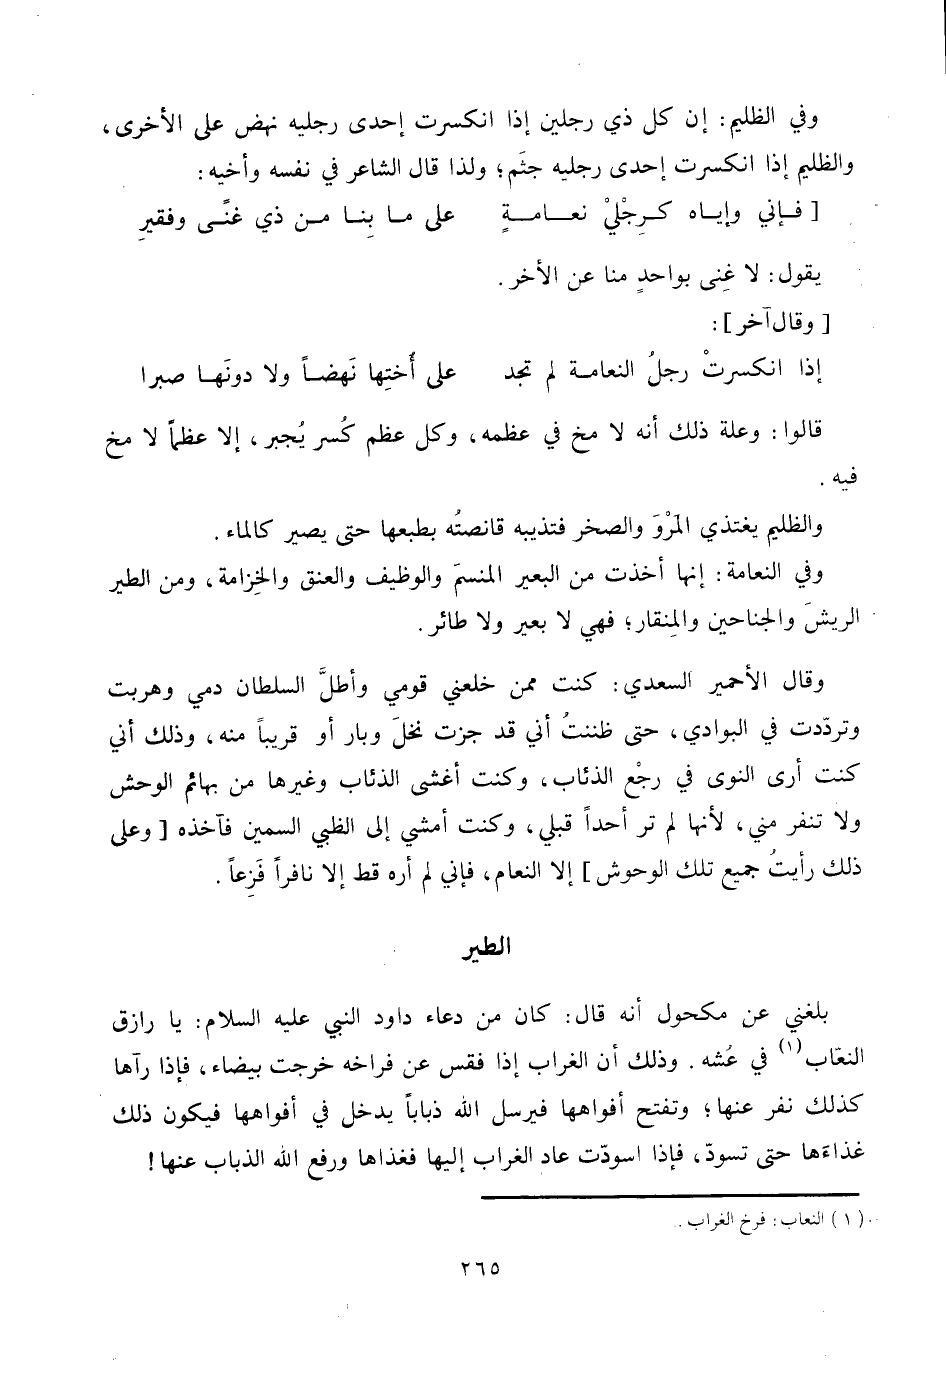 وفي الظليم: إن كل ذي رجلين إذا انكسرت إحدى رجليه نهض على الأخرى،
والظليم إذا انكسرت إحدى رجليه جثَم؛ ولذا قال الشاعر في نفسه وأخيه:
[ فإني وإياه كرِجْلَيْ نعامةٍ على ما بِنا من ذي غنًى وفقيرِ
يقول: لا غِنى بواحدٍ منا عن الأخر.
[ وقال آخر ]:
إذا انكسرتْ رجلُ النعامة لم تجد على أُختِها نَهضاً ولا دونَها صبرا
قالوا: وعلة ذلك أنه لا مخ في عظمه، وكل عظم كُسر يُجبر، إلا عظماً لا مخ
فيه.
والظليم يغتذي المَرْوَ والصخر فتذيبه قانصتُه بطبعها حتى يصير كالماء.
وفي النعامة: إنها أخذت من البعير المنسمَ والوظيف والعنق والخِزامة، ومن الطير
الريشَ والجناحين والمِنقار؛ فهي لا بعير ولا طائر.
وقال الأحمير السعدي: كنت ممن خلعني قومي وأطلَّ السلطان دمي وهربت
وتردّدت في البوادي، حتى ظننتُ أني قد جزت نخلَ وبار أو قريباً منه، وذلك أني
كنت أرى النوى في رجْع الذئاب، وكنت أغشى الذئاب وغيرها من بهائم الوحش
ولا تنفر مني، لأنها لم تر أحداً قبلي، وكنت أمشي إلى الظبي السمين فآخذه [ وعلى
ذلك رأيتُ جميع تلك الوحوش ] إلا النعام، فإني لم أره قط إلا نافراً فَزِعاً.
الطير
بلغني عن مكحول أنه قال: كان من دعاء داود النبي عليه السلام: يا رازق
النعّاب(١) في عُشه. وذلك أن الغراب إذا فقس عن فراخه خرجت بيضاء، فإذا رآها
كذلك نفر عنها؛ وتفتح أفواهها فيرسل الله ذباباً يدخل في أفواهها فيكون ذلك
غذاءَها حتى تسودّ، فإذا اسودّت عاد الغراب إليها فغذاها ورفع الله الذباب عنها!
(١) النعاب: فرخ الغراب.
٢٦٥